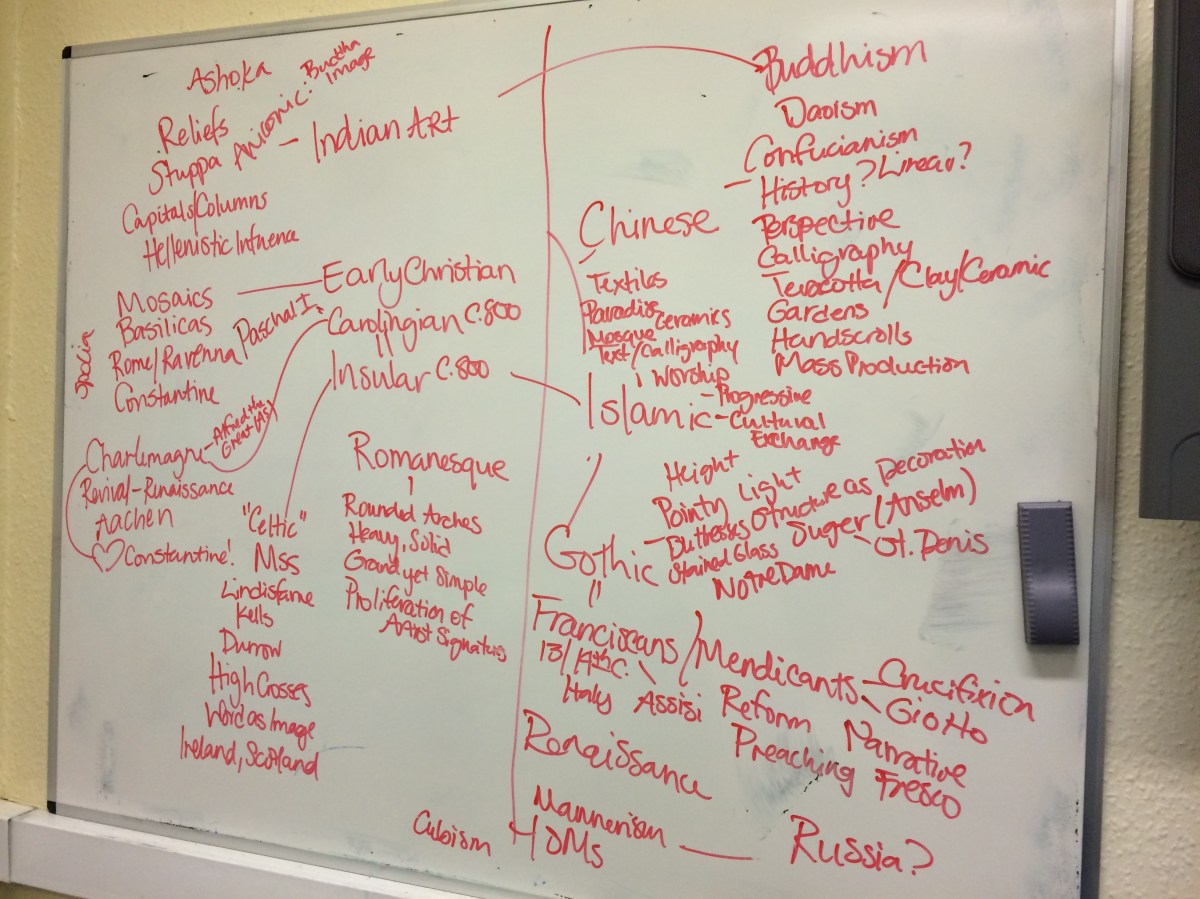 Ashoka
Reliefs
Stuppa
Aniconic: Buddha
Image
– Indian Art
Capitals/Columns
Hellenistic Influence
Mosaics
Basilicas
Rome/Ravenna
Constantine
Spolia
Early Christian
Paschal I
Carolingian c.800
Insular c.800
Charlemagne
– Alfred the
Great (AS)
Revival-Renaissance
Aachen
♡ Constantine!
"Celtic"
Mss
Lindisfarne
Kells
Durrow
High Crosses
Word as Image
Ireland, Scotland
Romanesque
Rounded Arches
Heavy, Solid
Grand yet Simple
Proliferation of
Artist Signatures
Buddhism
Daoism
Confucianism
– History? Linear?
Perspective
Calligraphy
Teracotta/Clay/Ceramic
Gardens
Handscrolls
Mass Production
Chinese
Textiles
Paradise
Ceramics
Mosque
Text/Calligraphy
Worship
Islamic
– Progressive
– Cultural
Exchange
Height
Pointy Light
– Buttresses Structure as Decoration
Stained Glass Suger (Anselm)
– St. Denis
Notre Dame
Gothic
Franciscans/Mendicants
13/14th C.
Italy
Assisi
Reform
Preaching
– Crucifixion
Giotto
Narrative
Fresco
Renaissance
Mannerism
HOMs
Cubism
Russia?